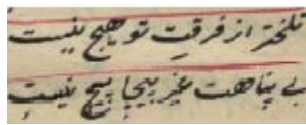 تلختر از فرقت تو هیچ نیست
بے پناهت غیر پیچا پیچ نیست